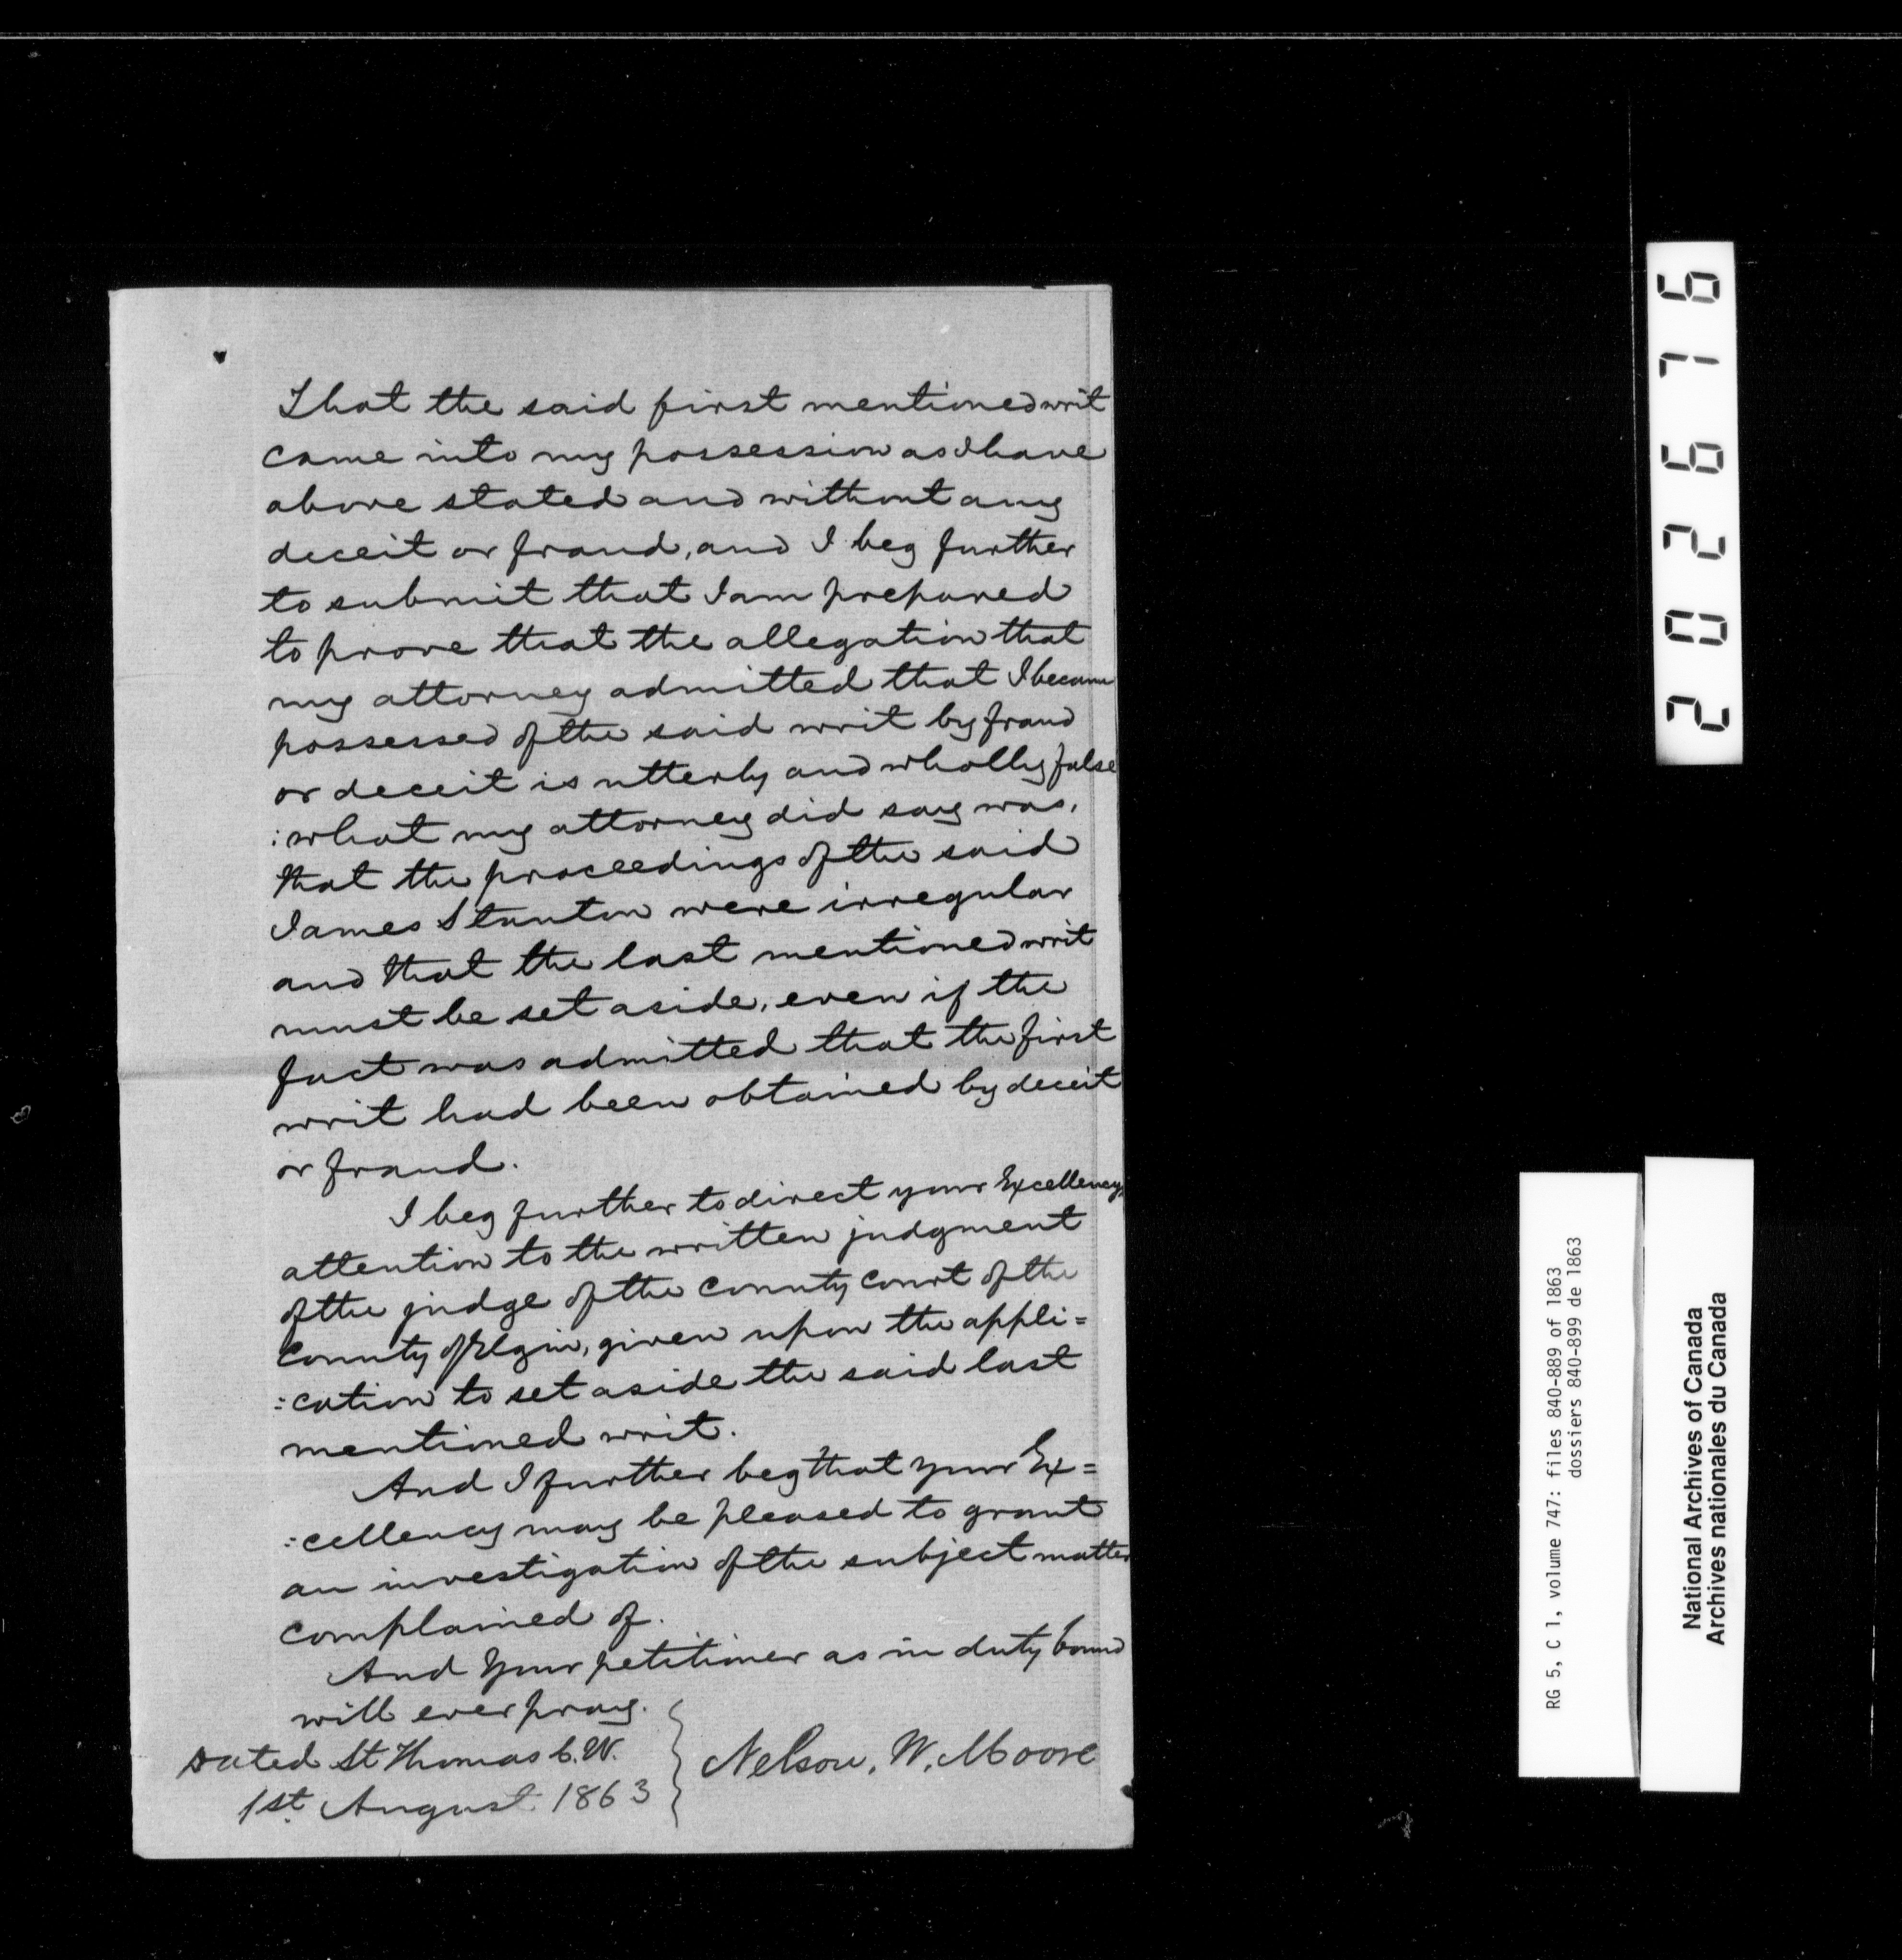 That the said first mentioned writ
came into my possession as I have
above stated and without any
deceit or fraud, and I beg further
to submit that I am prepared
to prove that the allegation that
my attorney admitted that I became
possessed of the said writ by fraud
or deceit is utterly and wholly false
: what my attorney did say was,
that the proceedings of the said
James Stanton were irregular
and that the last mentioned writ
must be set aside, even if the
fact was admitted that the first
writ had been obtained by deceit
or fraud.
I beg further to direct your Excellency's
attention to the written judgment
of the judge of the County Court of the
County of Elgin, given upon the appli=
:cation to set aside the said last
mentioned writ.
And I further beg that your Ex=
:cellency may be pleased to grant
an investigation of the subject matter
complained of.
And Your petitioner as in duty bound
will ever pray.
Dated St Thomas C.W.
1st August 1863
Nelson. W. Moore
202676
RG 5, C 1, volume 747: files 840-889 of 1863
dossiers 840-899 de 1863
National Archives of Canada
Archives nationales du Canada